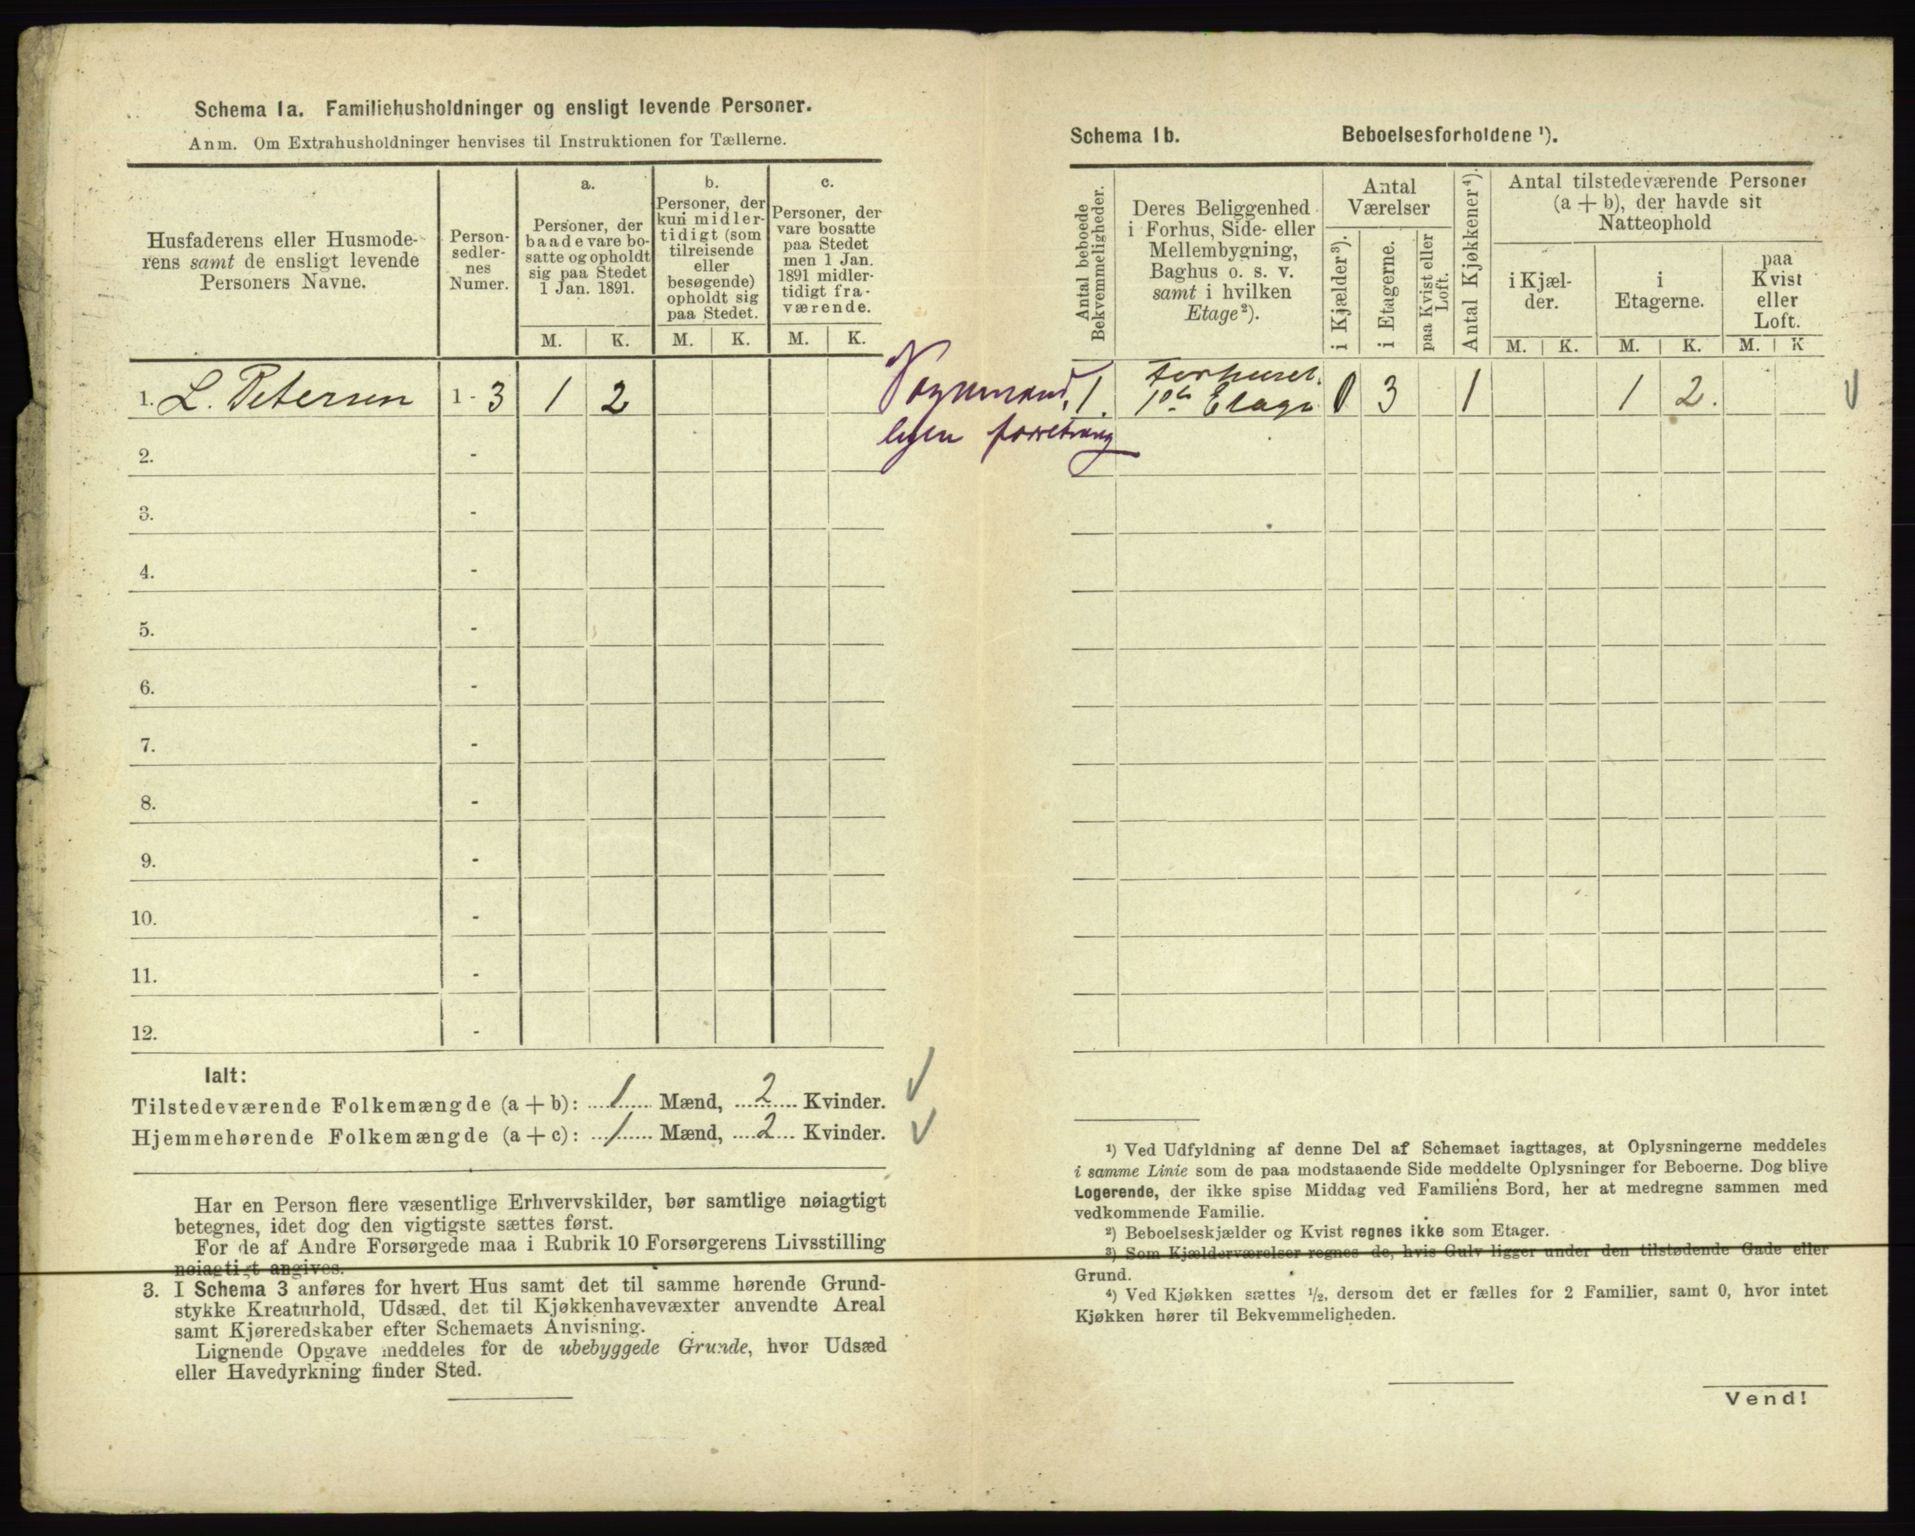 Schema 1a. Familiehusholdninger og ensligt levende Personer.
Anm. Om Extrahusholdninger henvises til Instruktionen for Tællerne.
Husfaderens eller Husmode-
rens samt de ensligt levende
Personers Navne.
Person-
sedler-
nes
Numer.
a.
Personer, der
baade vare bo-
satte og opholdt
sig paa Stedet
1 Jan. 1891.
M. K.
b.
Personer, der
kun midler-
tidigt (som
tilreisende
eller
besøgende)
opholdt sig
paa Stedet.
M. K.
c.
Personer, der
vare bosatte
paa Stedet
men 1 Jan.
1891 midler-
tidigt fra-
værende.
M. K.
1. L. Petersen 1 - 3 1 2
2. -
3. -
4. -
5. -
6. -
7. -
8. -
9. -
10. -
11. -
12. -
Ialt:
Tilstedeværende Folkemængde (a + b): 1 Mænd, 2 Kvinder.
Hjemmehørende Folkemængde (a + c): 1 Mænd, 2 Kvinder.
Har en Person flere væsentlige Erhvervskilder, bør samtlige nøiagtigt
betegnes, idet dog den vigtigste sættes først.
For de af Andre Forsørgede maa i Rubrik 10 Forsørgerens Livsstilling
nøiagtigt angives.
3. I Schema 3 anføres for hvert Hus samt det til samme hørende Grund-
stykke Kreaturhold, Udsæd, det til Kjøkkenhavevæxter anvendte Areal
samt Kjøreredskaber efter Schemaets Anvisning.
Lignende Opgave meddeles for de ubebyggede Grunde, hvor Udsæd
eller Havedyrkning finder Sted.
Schema 1b. Beboelsesforholdene ¹).
Antal beboede
Bekvemmeligheder.
Deres Beliggenhed
i Forhus, Side- eller
Mellembygning,
Baghus o. s. v.
samt i hvilken
Etage²).
Antal
Værelser
i Kjælder³).
i Etagerne.
paa Kvist eller
Loft.
Antal Kjøkkener⁴).
Antal tilstedeværende Personer
(a + b), der havde sit
Natteophold
i Kjæl-
der.
i
Etagerne.
paa
Kvist
eller
Loft.
M. K. M. K. M. K
Vognmand,
forretning
1. Forhuset.
1ste Etage 0 3 1 1 2.
¹) Ved Udfyldning af denne Del af Schemaet iagttages, at Oplysningerne meddeles
i samme Linie som de paa modstaaende Side meddelte Oplysninger for Beboerne. Dog blive
Logerende, der ikke spise Middag ved Familiens Bord, her at medregne sammen med
vedkommende Familie.
²) Beboelseskjælder og Kvist regnes ikke som Etager.
³) Som Kjælderværelser regnes de, hvis Gulv ligger under den tilstødende Gade eller
Grund.
⁴) Ved Kjøkken sættes ½, dersom det er fælles for 2 Familier, samt 0, hvor intet
Kjøkken hører til Bekvemmeligheden.
Vend!